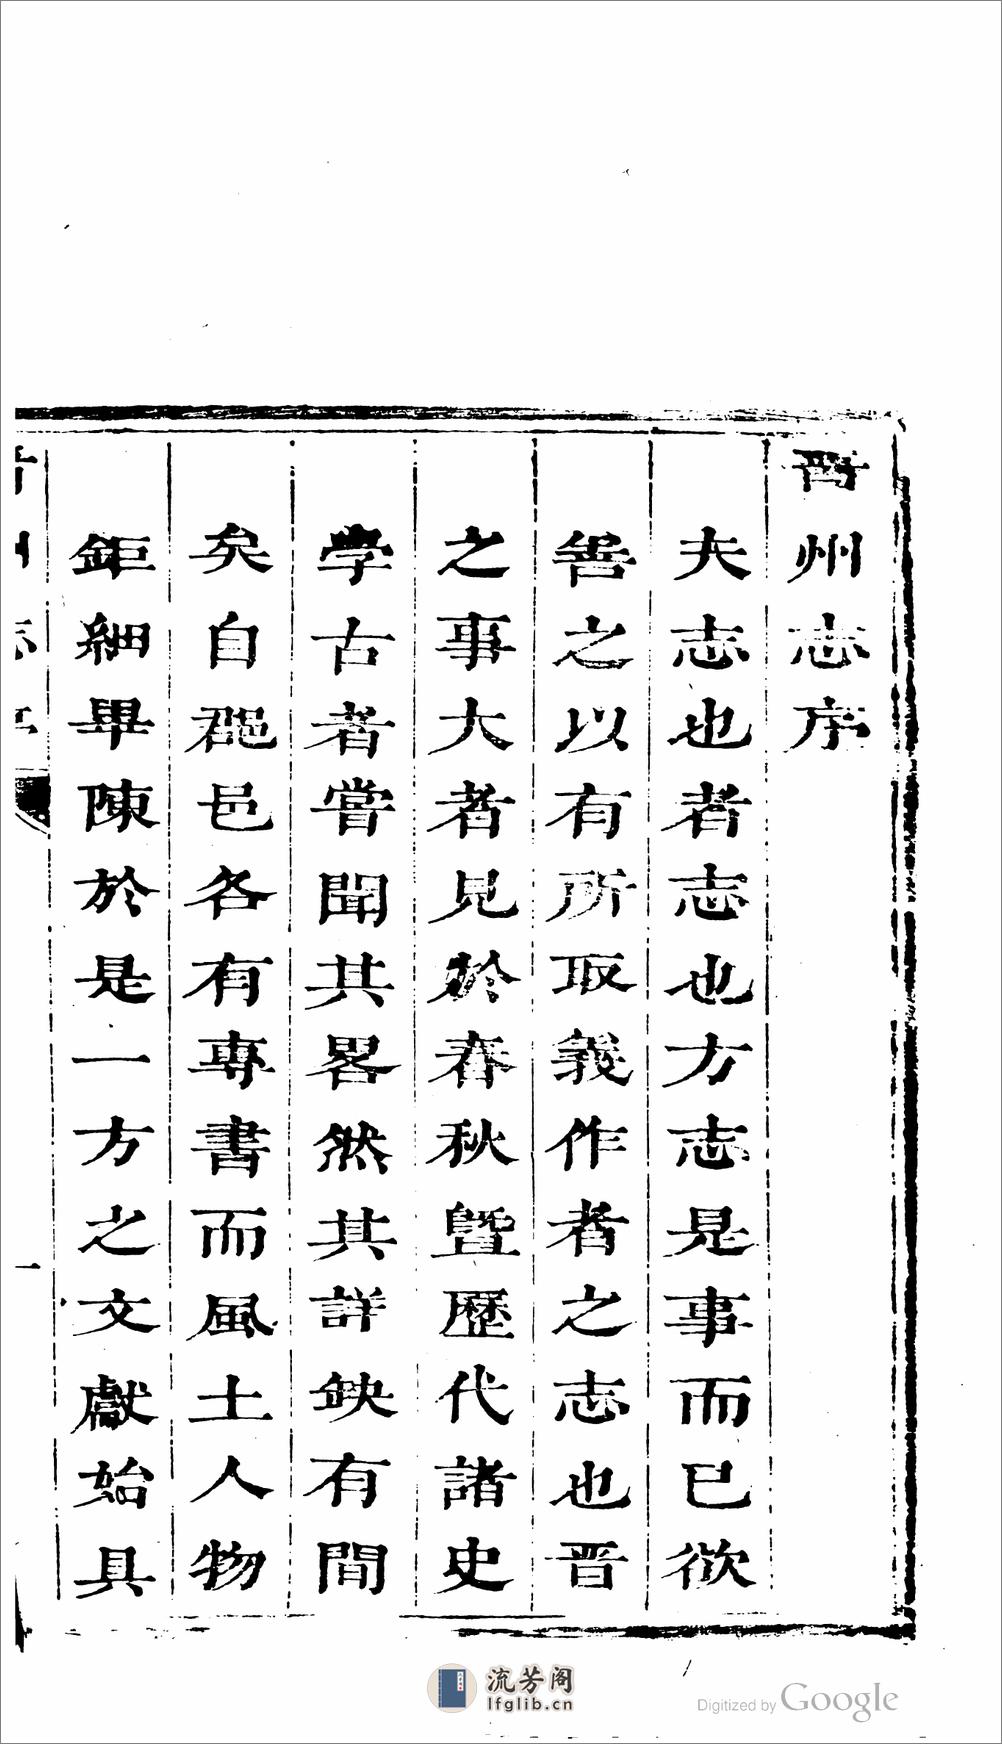 晉州志序
夫志也者志也方志是事而已欲
善之以有所取義作者之志也晋
之事大者見於春秋暨歷代諸史
學古者嘗聞其畧然其詳缺有間
矣自郡邑各有専書而風土人物
鉅細畢陳於是一方之文獻始具
流芳阁
lfglib.cn
Digitized by Google